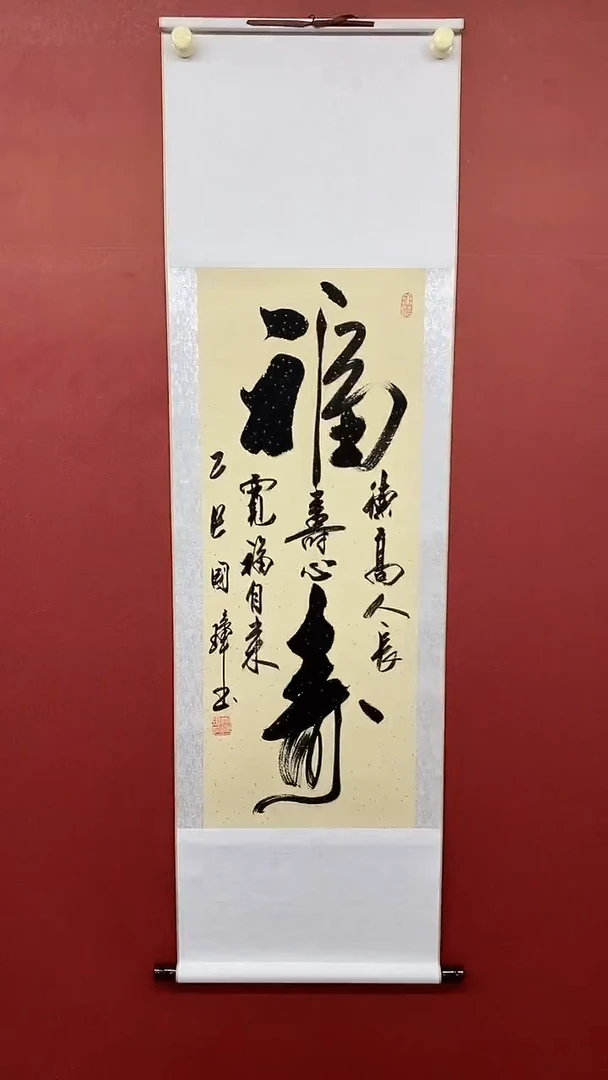 福寿
德高人長
壽心
寬福自来
乙巳國璋书